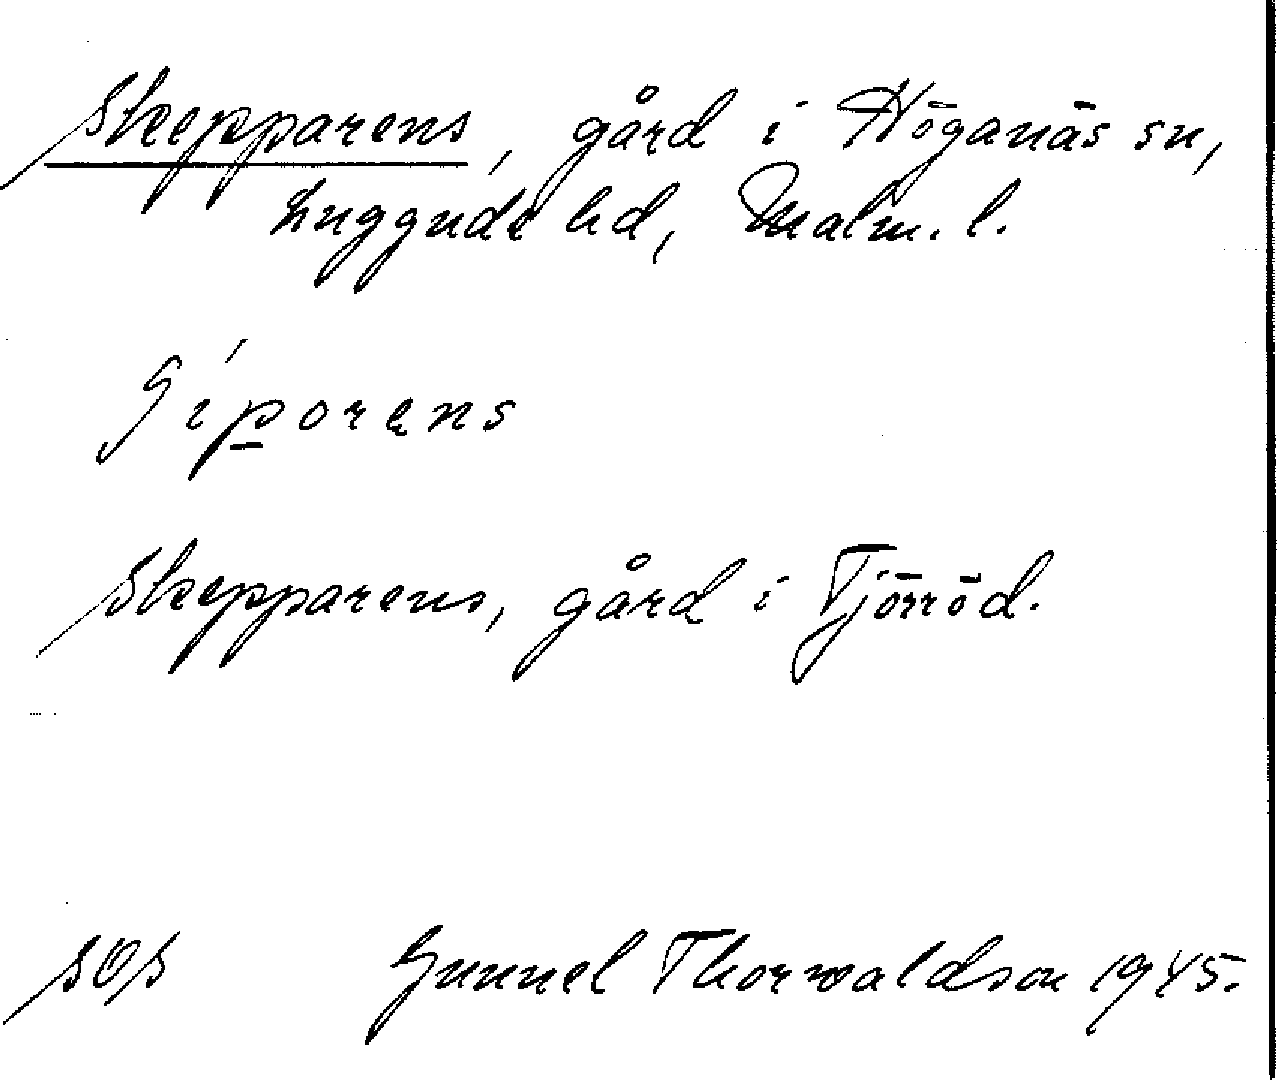 Skepparens, gård i Höganäs sn,
Luggude hd, Malm. l.
Skepparens, gård i Tjörröd.
SOS Gunnel Thorwaldson 1945.